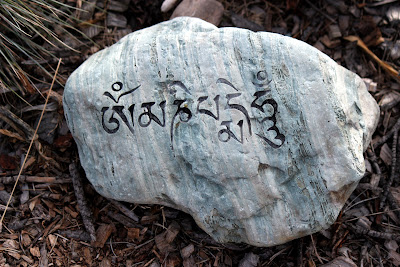 ཨོཾ་མ་ཎི་པ་དྨེ་ཧཱུྃ